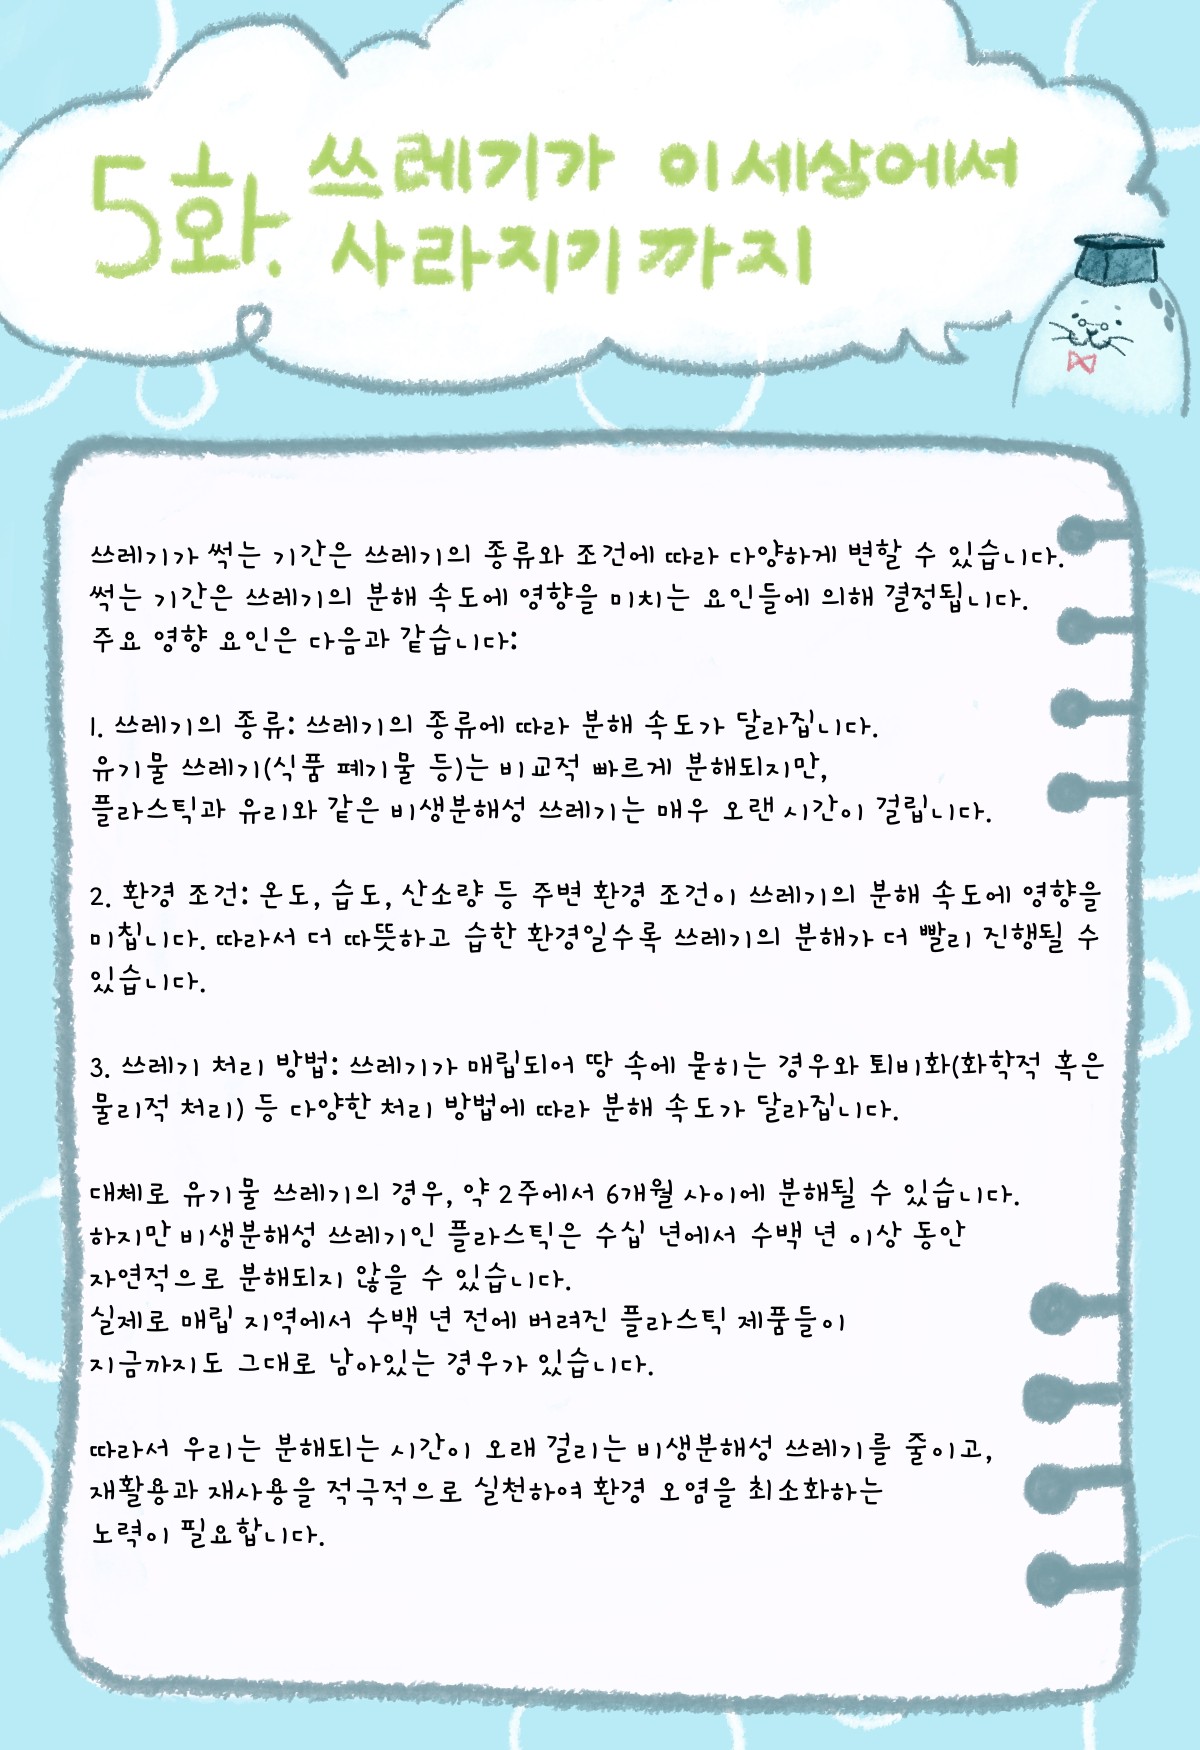 5화. 쓰레기가 이 세상에서
사라지기까지
쓰레기가 썩는 기간은 쓰레기의 종류와 조건에 따라 다양하게 변할 수 있습니다.
썩는 기간은 쓰레기의 분해 속도에 영향을 미치는 요인들에 의해 결정됩니다.
주요 영향 요인은 다음과 같습니다:
1. 쓰레기의 종류: 쓰레기의 종류에 따라 분해 속도가 달라집니다.
유기물 쓰레기(식품 폐기물 등)는 비교적 빠르게 분해되지만,
플라스틱과 유리와 같은 비생분해성 쓰레기는 매우 오랜 시간이 걸립니다.
2. 환경 조건: 온도, 습도, 산소량 등 주변 환경 조건이 쓰레기의 분해 속도에 영향을
미칩니다. 따라서 더 따뜻하고 습한 환경일수록 쓰레기의 분해가 더 빨리 진행될 수
있습니다.
3. 쓰레기 처리 방법: 쓰레기가 매립되어 땅 속에 묻히는 경우와 퇴비화(화학적 혹은
물리적 처리) 등 다양한 처리 방법에 따라 분해 속도가 달라집니다.
대체로 유기물 쓰레기의 경우, 약 2주에서 6개월 사이에 분해될 수 있습니다.
하지만 비생분해성 쓰레기인 플라스틱은 수십 년에서 수백 년 이상 동안
자연적으로 분해되지 않을 수 있습니다.
실제로 매립 지역에서 수백 년 전에 버려진 플라스틱 제품들이
지금까지도 그대로 남아있는 경우가 있습니다.
따라서 우리는 분해되는 시간이 오래 걸리는 비생분해성 쓰레기를 줄이고,
재활용과 재사용을 적극적으로 실천하여 환경 오염을 최소화하는
노력이 필요합니다.